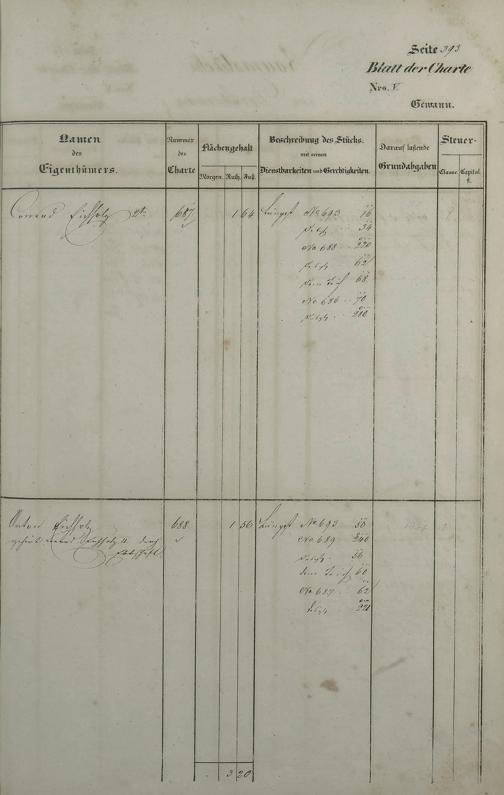 Seite 393
Blatt der Charte
Nro. V.
Gewann.
Namen des Eigenthümers.
Nummer der Charte
Flächengehalt
Morgen. Ruth. Fuß.
Beschreibung des Stücks. mit seinen Dienstbarkeiten und Gerechtigkeiten.
Darauf lastende Grundabgaben
Steuer-
Classe Capital. fl.
Conrad Eichholz 2r. 687 1 64 No 693 16
54
No 688 220
62
68
No 686 70
210
Anton Eichholz 688 1 56 No 693 50
Eichholz II. durch No 689 240
56
60
No 687 62
221
3 20